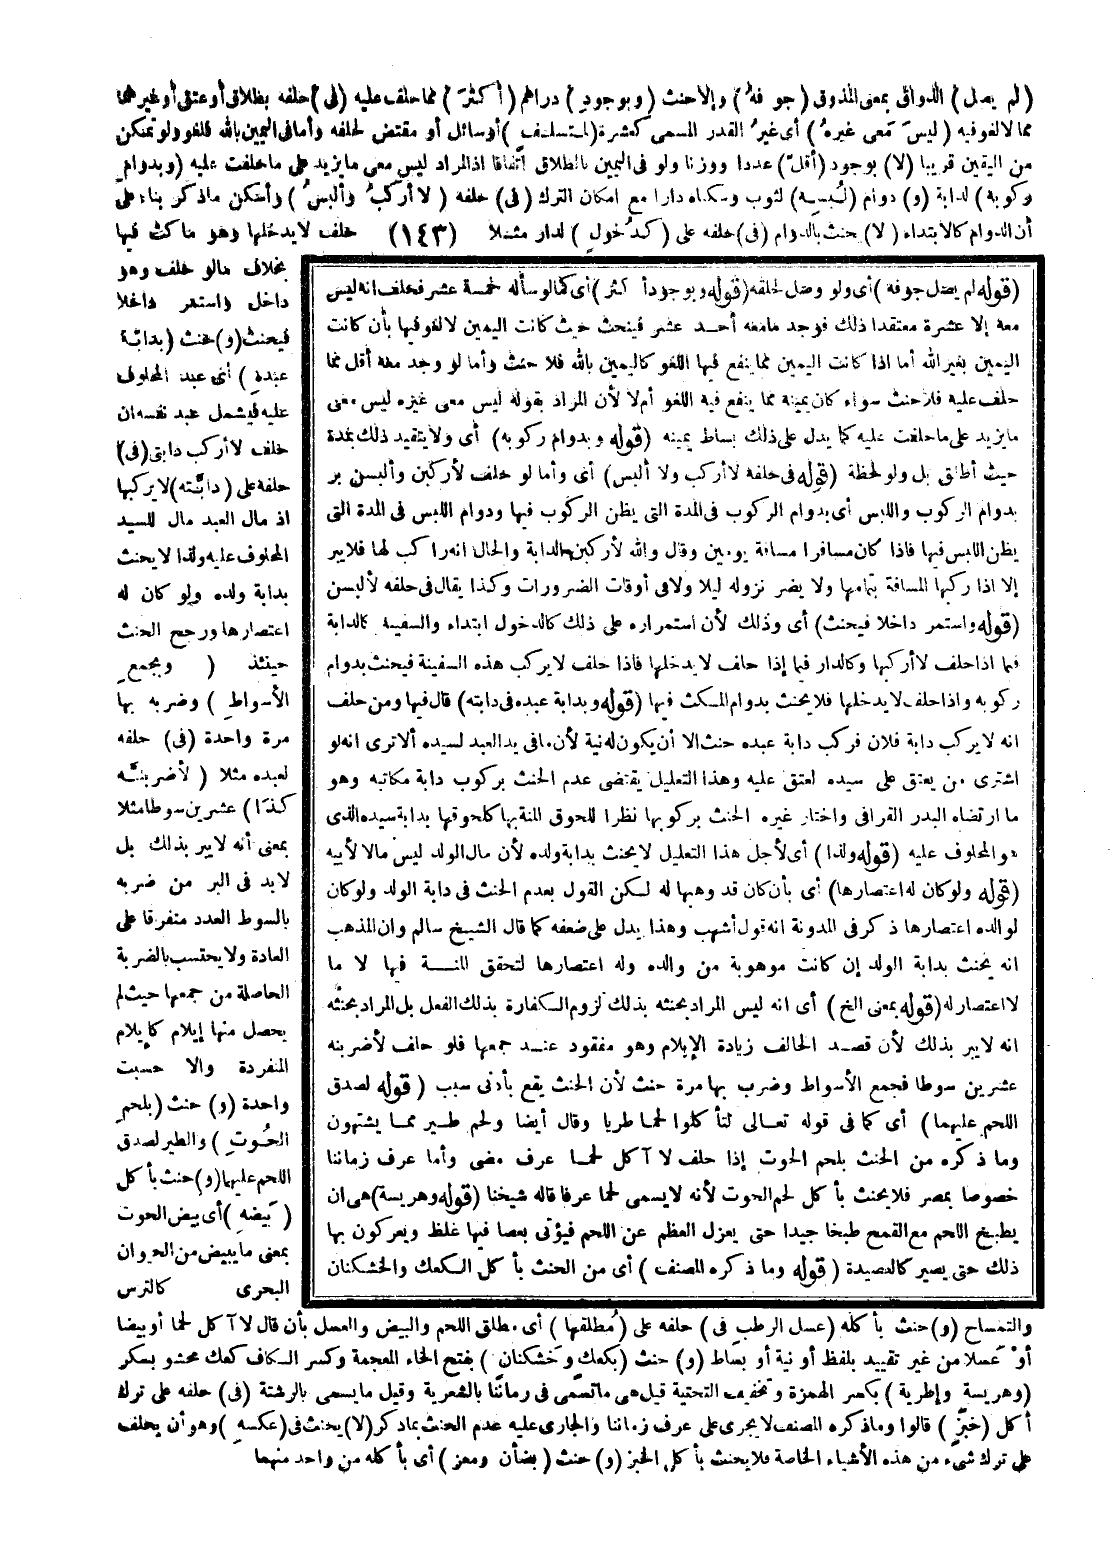 (لم يصل) الذواق بمعنى المذوق (جوفه) وإلا حنث (وبوجود) دراهم (أكثر) مما حلف عليه (فى) حلفه بطلاق أو عتق أو غيرهما
مما لا لغو فيه (ليس معى غيره) أى غير القدر المسمى كعشرة (لمتسلف) أو سائل أو مقتض لحلفه وأما فى اليمين بالله فلغو ولو تمكن
من اليقين قريبا (لا) بوجود (أقل) عددا ووزنا ولو فى اليمين بالطلاق اتفاقا اذ المراد ليس معى ما يزيد على ما حلفت عليه (وبدوام
ركوبه) لدابة (و) دوام (لبسه) لثوب وسكناه دارا مع امكان الترك (فى) حلفه (لا أركب وألبس) وأسكن ماذكر بناء على
أن الدوام كالابتداء (لا) حنث بالدوام (فى) حلفه على (كدخول) لدار مثلا (١٤٣) حلف لا يدخلها وهو ماكث فيها
بخلاف مالو حلف وهو
داخل واستمر داخلا
فيحنث (و) حنث (بدابة
عبده) أى عبد المحلوف
عليه فيشمل عبد نفسه ان
حلف لا أركب دابتى (فى)
حلفه على (دابته) لا يركبها
اذ مال العبد مال للسيد
المحلوف عليه ولذا لا يحنث
بدابة ولده ولو كان له
اعتصارها ورجح الحنث
حينئذ (وبجمع
الأسواط) وضربه بها
مرة واحدة (فى) حلفه
لعبده مثلا (لأضربنه
كذا) عشرين سوطا مثلا
بمعنى أنه لا يبر بذلك بل
لابد فى البر من ضربه
بالسوط العدد متفرقا على
العادة ولا يحتسب بالضربة
الحاصلة من جمعها حيث لم
يحصل منها إيلام كايلام
المنفردة والا حسبت
واحدة (و) حنث (بلحم
الحوت) والطير لصدق
اللحم عليها (و) حنث بأكل
(بيضه) أى بيض الحوت
بمعنى ما يبيض من الحيوان
البحرى كالترس
(قوله لم يصل جوفه) أى ولو وصل لحلقه (قوله وبوجود أكثر) أى كما لو سأله خمسة عشر فحلف انه ليس
معه إلا عشرة معتقدا ذلك فوجد مامعه أحد عشر فيحنث حيث كانت اليمين لا لغو فيها بأن كانت
اليمين بغير الله أما اذا كانت اليمين مما ينفع فيها اللغو كاليمين بالله فلا حنث وأما لو وجد معه أقل مما
حلف عليه فلا حنث سواء كان يمينه مما ينفع فيه اللغو أم لا لأن المراد بقوله ليس معى غيره ليس معى
ما يزيد على ماحلفت عليه كما يدل على ذلك بساط يمينه (قوله وبدوام ركوبه) أى ولا يتقيد ذلك بمدة
حيث أطلق بل ولو لحظة (قوله فى حلفه لا أركب ولا ألبس) أى وأما لو حلف لأركبن وألبسن بر
بدوام الركوب واللبس أى بدوام الركوب فى المدة التى يظن الركوب فيها ودوام اللبس فى المدة التى
يظن اللبس فيها فاذا كان مسافرا مسافة يومين وقال والله لأركبن الدابة والحال انه راكب لها فلا يبر
إلا اذا ركبها المسافة بتمامها ولا يضر نزوله ليلا ولا فى أوقات الضرورات وكذا يقال فى حلفه لألبسن
(قوله واستمر داخلا فيحنث) أى وذلك لأن استمراره على ذلك كالدخول ابتداء والسفينة كالدابة
فيما اذا حلف لا أركبها وكالدار فيما إذا حلف لا يدخلها فاذا حلف لا يركب هذه السفينة فيحنث بدوام
ركوبه واذا حلف لا يدخلها فلا يحنث بدوام المكث فيها (قوله وبدابة عبده فى دابته) قال فيها ومن حلف
انه لا يركب دابة فلان فركب دابة عبده حنث الا أن يكون له نية لأن مافى يد العبد لسيده ألا ترى انه لو
اشترى من يعتق على سيده لعتق عليه وهذا التعليل يقتضى عدم الحنث بركوب دابة مكاتبه وهو
ما ارتضاه البدر القرافى واختار غيره الحنث بركوبها نظرا للحوق المنة بها كلحوقها بدابة سيده الذى
هو المحلوف عليه (قوله ولذا) أى لأجل هذا التعليل لا يحنث بدابة ولده لأن مال الولد ليس مالا لأبيه
(قوله ولو كان له اعتصارها) أى بأن كان قد وهبها له لكن القول بعدم الحنث فى دابة الولد ولو كان
لوالده اعتصارها ذكر فى المدونة انه قول أشهب وهذا يدل على ضعفه كما قال الشيخ سالم وان المذهب
انه يحنث بدابة الولد إن كانت موهوبة من والده وله اعتصارها لتحقق المنة فيها لا ما
لا اعتصار له (قوله بمعنى الخ) أى انه ليس المراد بحنثه بذلك لزوم الكفارة بذلك الفعل بل المراد بحنثه
انه لا يبر بذلك لأن قصد الحالف زيادة الإيلام وهو مفقود عند جمعها فلو حلف لأضربنه
عشرين سوطا فجمع الأسواط وضرب بها مرة حنث لأن الحنث يقع بأدنى سبب (قوله لصدق
اللحم عليهما) أى كما فى قوله تعالى لتأكلوا لحما طريا وقال أيضا ولحم طير مما يشتهون
وما ذكره من الحنث بلحم الحوت إذا حلف لا آكل لحما عرف مضى وأما عرف زماننا
خصوصا بمصر فلا يحنث بأكل لحم الحوت لأنه لا يسمى لحما عرفا قاله شيخنا (قوله وهريسة) هى ان
يطبخ اللحم مع القمح طبخا جيدا حتى يعزل العظم عن اللحم فيؤتى بعصا فيها غلظ ويعركون بها
ذلك حتى يصير كالعصيدة (قوله وما ذكره المصنف) أى من الحنث بأكل الكعك والخشكنان
والتمساح (و) حنث بأكله (عسل الرطب فى) حلفه على (مطلقها) أى مطلق اللحم والبيض والعسل بأن قال لا آكل لحما أو بيضا
أو عسلا من غير تقييد بلفظ أو نية أو بساط (و) حنث (بكعك وخشكنان) بفتح الخاء المعجمة وكسر الكاف كعك محشو بسكر
(وهريسة وإطرية) بكسر الهمزة وتخفيف التحتية قيل هى ماتسمى فى زماننا بالشعرية وقيل مايسمى بالرشتة (فى) حلفه على ترك
أكل (خبز) قالوا وماذكره المصنف لا يجرى على عرف زماننا والجارى عليه عدم الحنث بماذكر (لا) يحنث فى (عكسه) وهو أن يحلف
على ترك شىء من هذه الأشياء الخاصة فلا يحنث بأكل الخبز (و) حنث (بضأن ومعز) أى بأكله من واحد منهما